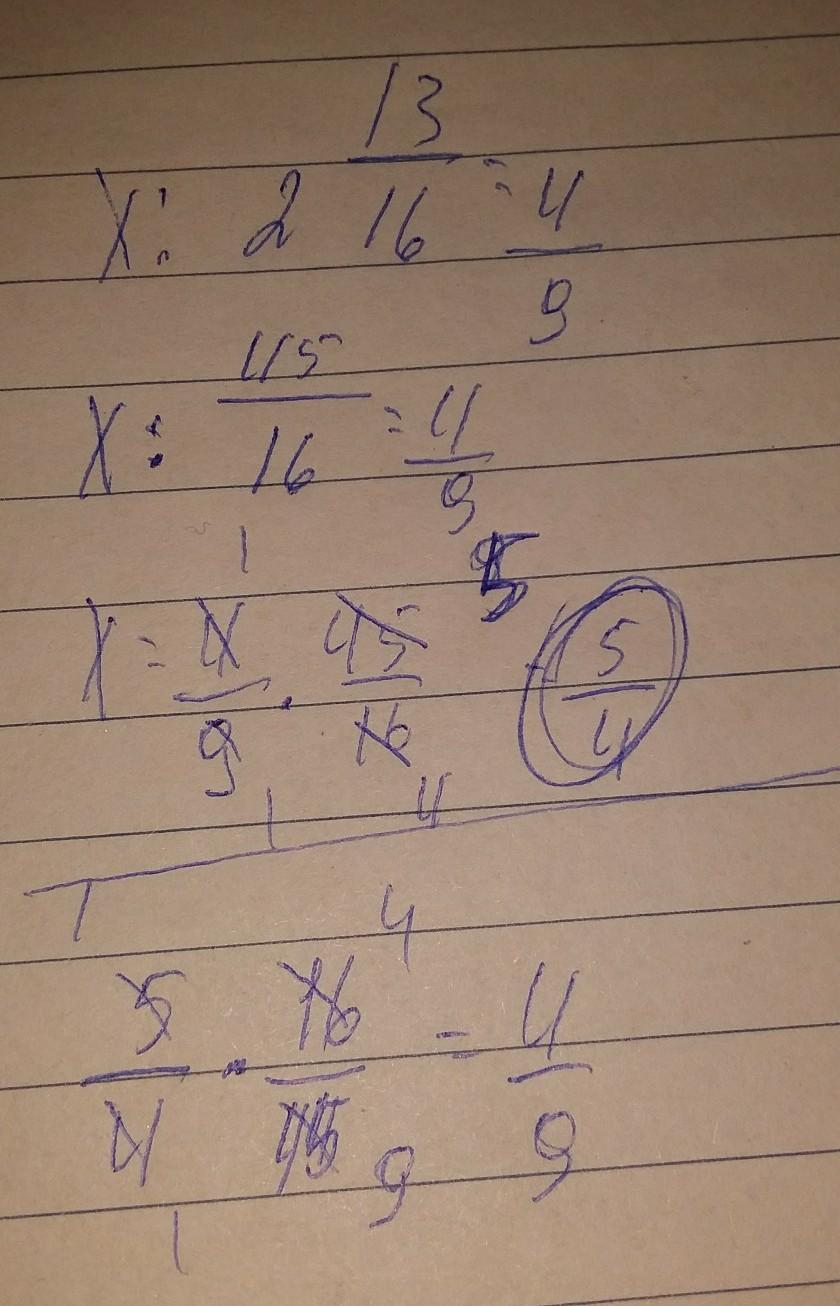 X : 2 13/16 = 4/9
X : 45/16 = 4/9
1 5
X = 4/9 · 45/16 = 5/4
1 4
1 4
5/4 · 16/45 = 4/9
1 9